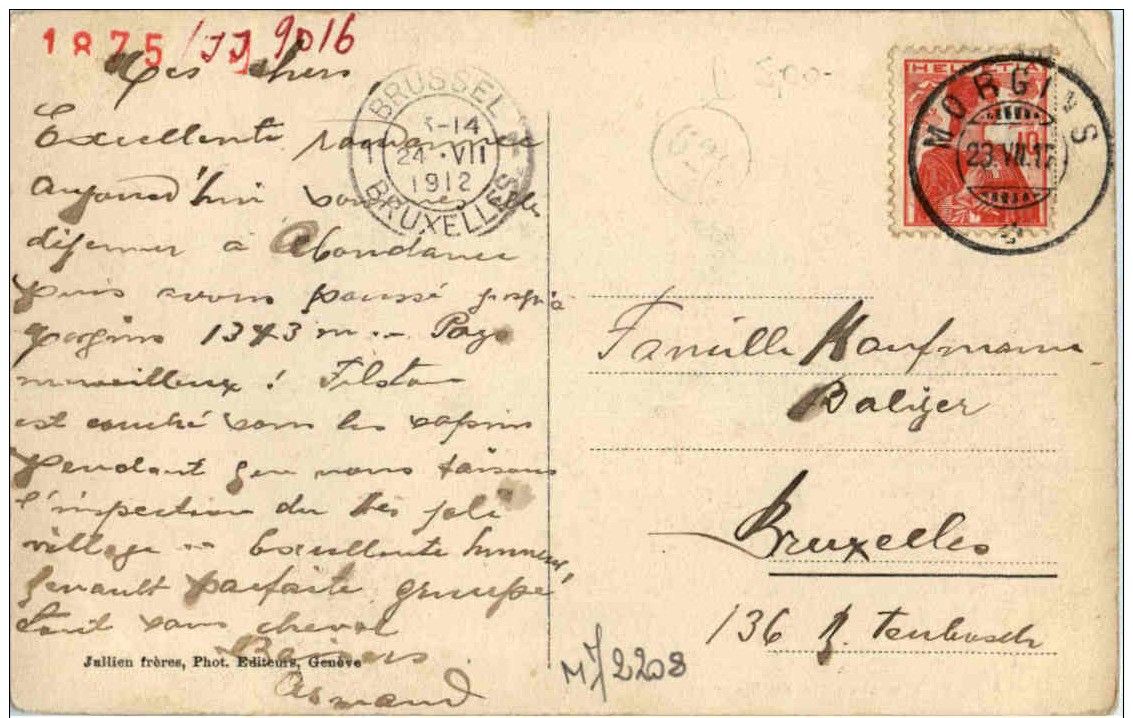 1875 / JJ 9016
Mes chers
Excellente randonnée
aujourd'hui sommes
déjeuner à Abondance
puis avons poussé jusqu'à
Morgins 1343 m.. Pays
merveilleux !
est couché sous les sapins
pendant que nous faisons
l'inspection du très joli
village .. Excellente humeur,
Renault parfaite grimpe
tout sans cheval
Baisers
Armand
Jullien frères, Phot. Editeurs, Genève
BRUSSEL
-14
24 VII
1912
BRUXELLES
500-
HELVETIA
10
MORGINS
23.VII.12
Famille Kaufmann-
Baliger
Bruxelles
136 R. Tenbosch
M7/2208